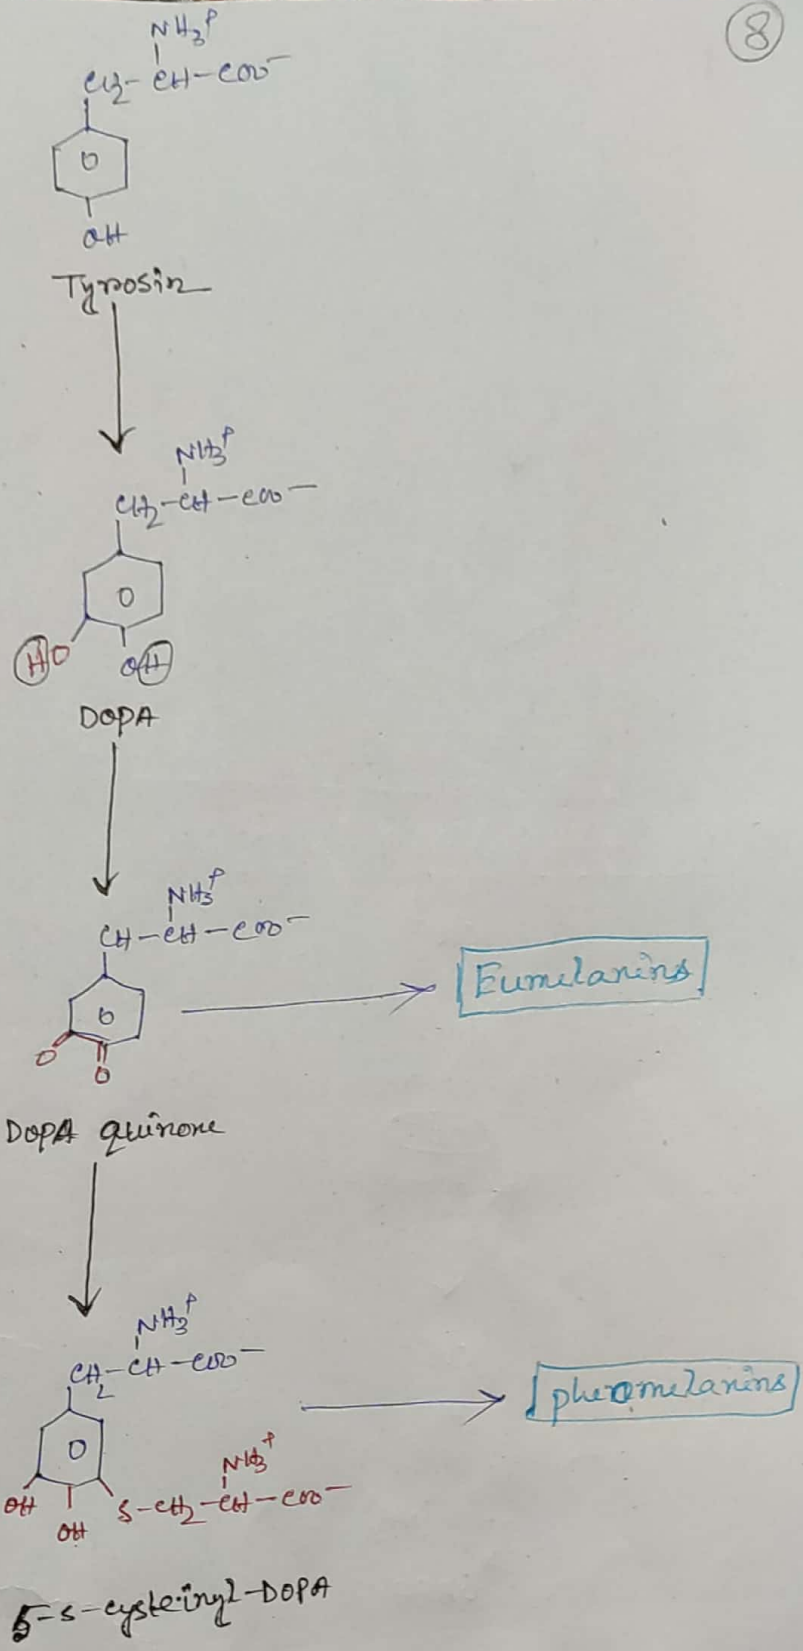 8
NH3+
CH2-CH-COO-
OH
Tyrosin
NH3+
CH2-CH-COO-
HO OH
DOPA
NH3+
CH-CH-COO-
Eumelanins
O
O
DOPA quinone
NH3+
CH2-CH-COO-
pheomelanins
NH3+
OH S-CH2-CH-COO-
OH
5-s-cysteinyl-DOPA